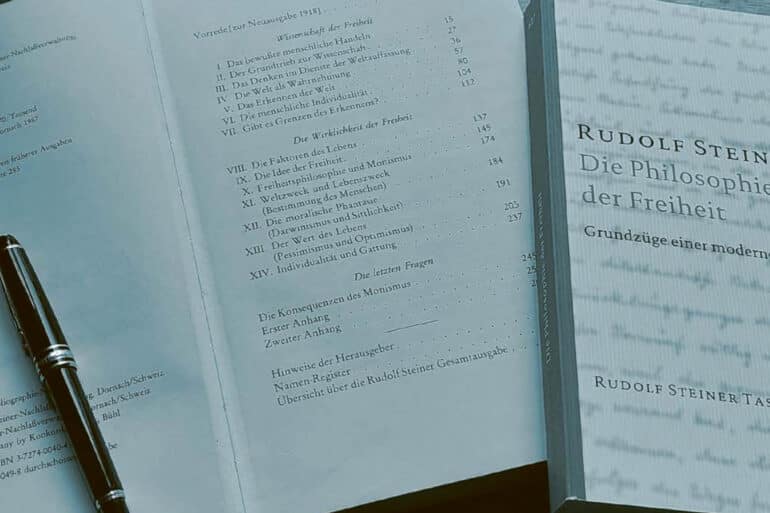 r-Nachlaßverwaltung,
Tausend
ornach 1987
en früherer Ausgaben
te 285
Dornach/Schweiz
ornach/Schweiz
Bühl
BN 3-7274-0040-4
049-8 durchschossene
Vorrede [zur Neuausgabe 1918]
Wissenschaft der Freiheit
I. Das bewußte menschliche Handeln 15
II. Der Grundtrieb zur Wissenschaft 27
III. Das Denken im Dienste der Weltauffassung 36
IV. Die Welt als Wahrnehmung 57
V. Das Erkennen der Welt 80
VI. Die menschliche Individualität 104
VII. Gibt es Grenzen des Erkennens? 112
Die Wirklichkeit der Freiheit
VIII. Die Faktoren des Lebens 137
IX. Die Idee der Freiheit 145
X. Freiheitsphilosophie und Monismus 174
XI. Weltzweck und Lebenszweck
(Bestimmung des Menschen) 184
XII. Die moralische Phantasie
(Darwinismus und Sittlichkeit) 191
XIII. Der Wert des Lebens
(Pessimismus und Optimismus) 205
XIV. Individualität und Gattung 237
Die letzten Fragen
Die Konsequenzen des Monismus 245
Erster Anhang 25
Zweiter Anhang 2
Hinweise der Herausgeber
Namen-Register
Übersicht über die Rudolf Steiner Gesamtausgabe
Die Philosophie der Freiheit
RUDOLF STEIN
Die Philosophie
der Freiheit
Grundzüge einer moderne
RUDOLF STEINER TAS